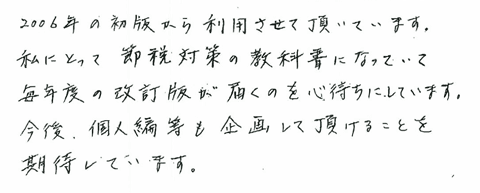 2006年の初版から利用させて頂いています。
私にとって節税対策の教科書になっていて
毎年度の改訂版が届くのを心待ちにしています。
今後、個人編等も企画して頂けることを
期待しています。